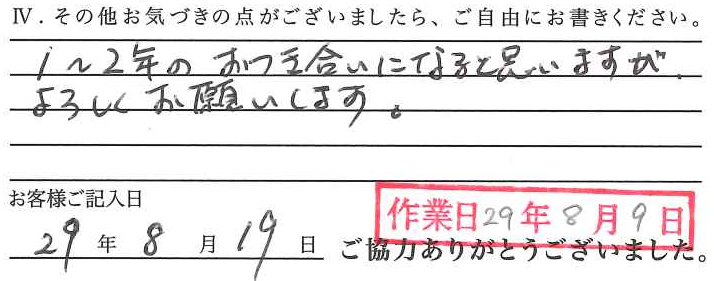 Ⅳ．その他お気づきの点がございましたら、ご自由にお書きください。
1～2年の おつき合いになると思いますが、
よろしくお願いします。
お客様ご記入日
作業日29年8月9日
29年8月19日
ご協力ありがとうございました。